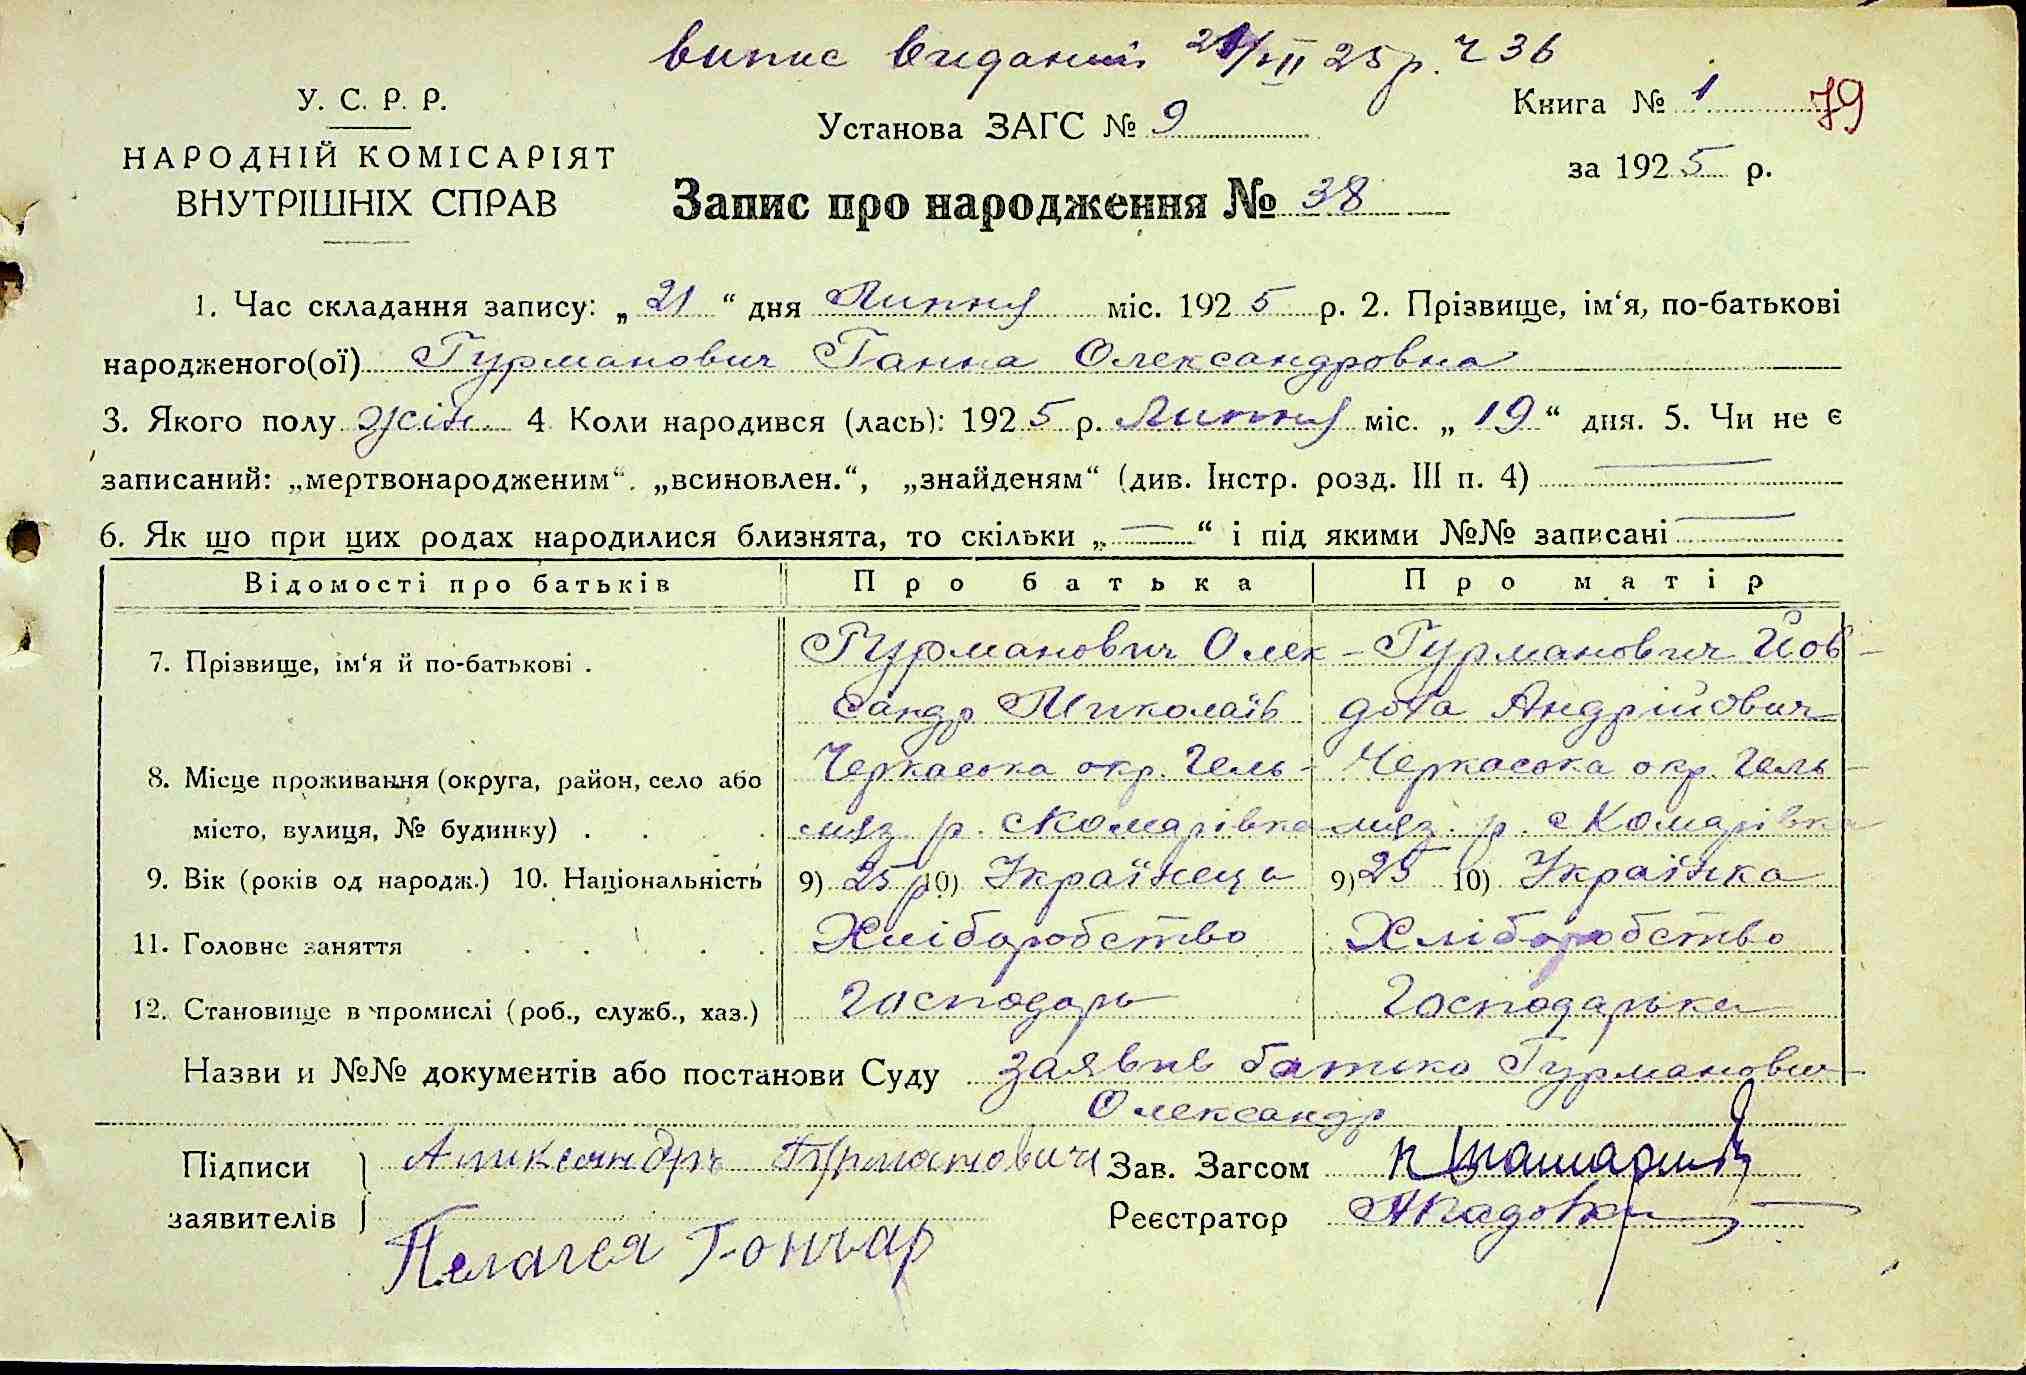 випис виданий 21/VII 25 р. ч 36
У. С. Р. Р.
НАРОДНІЙ КОМІСАРІЯТ
ВНУТРІШНІХ СПРАВ
Установа ЗАГС № 9
Книга № 1 79
за 1925 р.
Запис про народження № 38
1. Час складання запису: „ 21 “ дня Липня міс. 1925 р. 2. Прізвище, ім‘я, по-батькові
народженого(ої) Гурманович Ганна Олександровна
3. Якого полу жін. 4 Коли народився (лась): 1925 р. Липня міс. „ 19 “ дня. 5. Чи не є
записаний: „мертвонародженим“. „всиновлен.“, „знайденям“ (див. Інстр. розд. III п. 4) —
6. Як що при цих родах народилися близнята, то скільки „ — “ і під якими №№ записані —
Відомості про батьків Про батька Про матір
7. Прізвище, ім‘я й по-батькові . Гурманович Олек- Гурманович Йов-
сандр Миколаїв доха Андрійович
8. Місце проживання (округа, район, село або Черкаська окр. Гель- Черкаська окр. Гель-
місто, вулиця, № будинку) . . . мяз. р. с Комарівка мяз. р. с Комарівка
9. Вік (років од народж.) 10. Національність 9) 25 р 10) Українець 9) 25 10) Українка
11. Головне заняття . . . . . . Хліборобство Хліборобство
12. Становище в промислі (роб., служб., хаз.) Господарь Господарька
Назви и №№ документів або постанови Суду заявив батько Гурманович
Олександр
Підписи
заявителів
Аликсандръ Гурмановичъ
Пелагея Гончар
Зав. Загсом
Реєстратор